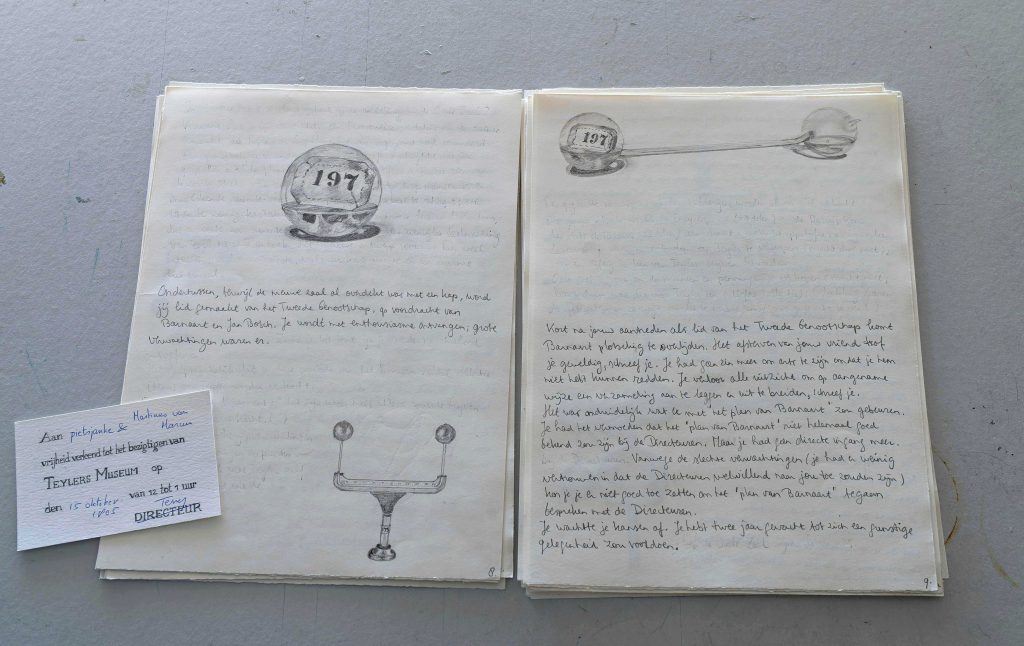 197
Ondertussen, terwijl de nieuwe zaal al overdekt was met een kap, word
jij lid gemaakt van het Tweede Genootschap, op voordracht van
Barnaart en Jan Bosch. Je wordt met enthousiasme ontvangen; grote
verwachtingen waren er.
8
Aan pietsjanke & Martinus van
Marum
vrijheid verleend tot het bezigtigen van
TEYLERS MUSEUM op
den 15 oktober van 12 tot 1 uur
1805
DIRECTEUR
197
Kort na jouw aantreden als lid van het Tweede Genootschap komt
Barnaart plotseling te overlijden. Het afsterven van jouw vriend trof
je geweldig, schreef je. Je had geen zin meer om arts te zijn omdat je hem
niet hebt kunnen redden. Je verloor alle uitzicht om op aangename
wijze een verzameling aan te leggen en uit te breiden, schreef je.
Het was onduidelijk wat er met 'het plan van Barnaart' zou gebeuren.
Je had het vermoeden dat het 'plan van Barnaart' niet helemaal goed
bekend zou zijn bij de Directeuren. Maar je had geen directe ingang meer.
Vanwege de slechte verwachtingen (je had er weinig
vertrouwen in dat de Directeuren welwillend naar jou toe zouden zijn)
kon je je er niet goed toe zetten om het 'plan van Barnaart' te gaan
bespreken met de Directeuren.
Je wachtte je kansen af. Je hebt twee jaar gewacht tot zich een gunstige
gelegenheid zou voordoen.
9.